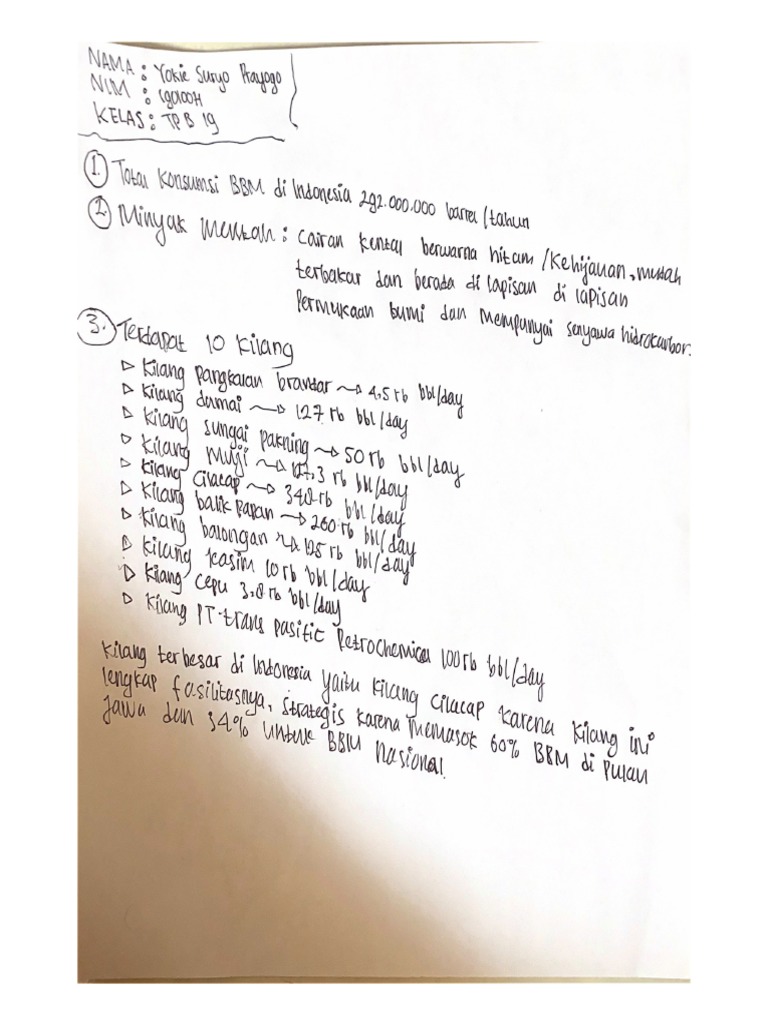 NAMA : Yokie Suryo Prayogo
NIM : 190100H
KELAS : TPB 19
1. Total Konsumsi BBM di Indonesia 292.000.000 barrel/tahun
2. Minyak mentah : Cairan kental berwarna hitam /Kehijauan, mudah
terbakar dan berada di lapisan di lapisan
Permukaan bumi dan mempunyai senyawa hidrokarbon.
3. Terdapat 10 Kilang
▷ Kilang pangkalan brandar → 4,5 rb bbl/day
▷ Kilang dumai → 127 rb bbl/day
▷ Kilang sungai pakning → 50 rb bbl/day
▷ Kilang Musi → 127,3 rb bbl/day
▷ Kilang Cilacap → 348 rb bbl/day
▷ Kilang balik papan → 260 rb bbl/day
▷ Kilang balongan → 125 rb bbl/day
▷ Kilang kasim 10 rb bbl/day
▷ Kilang cepu 3,8 rb bbl/day
▷ Kilang PT. trans pasific Petrochemical 100 rb bbl/day
Kilang terbesar di Indonesia yaitu Kilang Cilacap karena kilang ini
lengkap fasilitasnya, strategis karena memasok 60% BBM di Pulau
Jawa dan 34% untuk BBM Nasional.